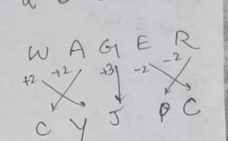 W A G E R
+2 +2 +3 -2 -2
C Y J P C